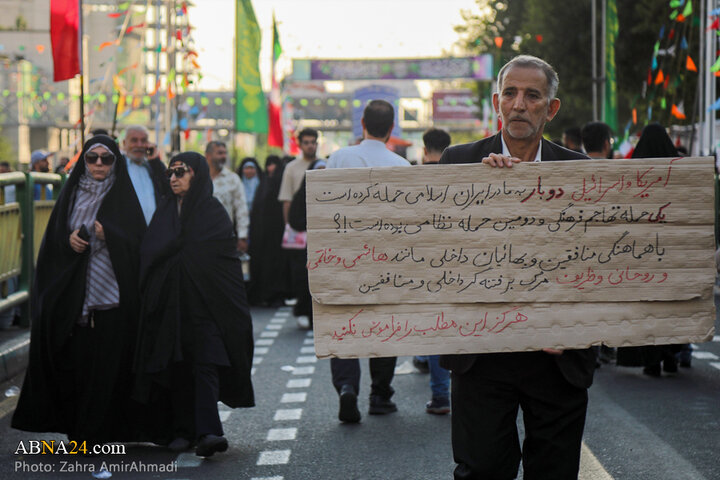 آمریکا و اسرائیل دوبار به ما در ایران اسلامی حمله کرده است
یک حمله تهاجم فرهنگی و دومین حمله نظامی بوده است !؟
با هماهنگی منافقین و بهائیان داخلی مانند هاشمی و خاتمی
و روحانی و ظریف مرگ بر فتنه گر داخلی و منافقین
هرگز این مطلب را فراموش نکنید
ABNA24.com
Photo: Zahra AmirAhmadi